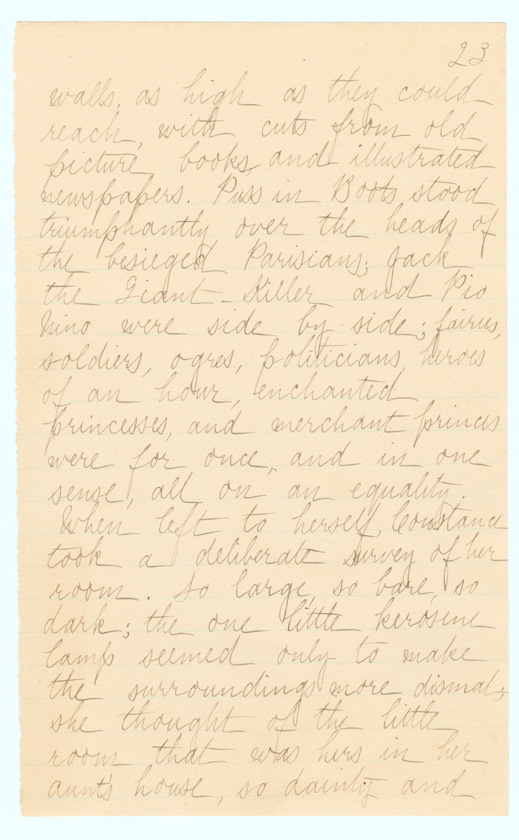 23
walls, as high as they could
reach, with cuts from old
picture books, and illustrated
newspapers. Puss in Boots stood
triumphantly over the heads of
the besieged Parisians; Jack
the Giant-Killer and Pio
Nino were side by side; fairies,
soldiers, ogres, politicians, heroes
of an hour, enchanted
princesses, and merchant princes
were for once, and in one
sense, all on an equality.
When left to herself, Constance
took a deliberate survey of her
room. So large, so bare, so
dark; the one little kerosene
lamp seemed only to make
the surroundings more dismal;
she thought of the little
room that was hers in her
aunt's house, so dainty and